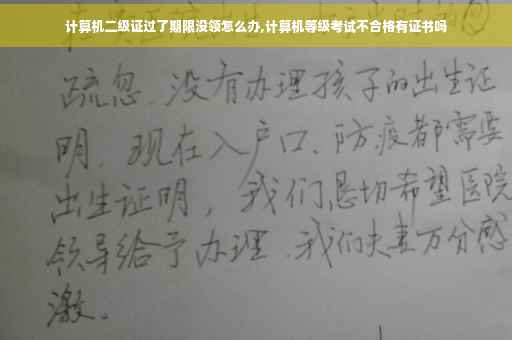 计算机二级证过了期限没领怎么办,计算机等级考试不合格有证书吗
疏忽、没有办理孩子的出生证
明、现在入户口、防疫都需要
出生证明，我们恳切希望医院
领导给予办理、我们夫妻万分感
激。